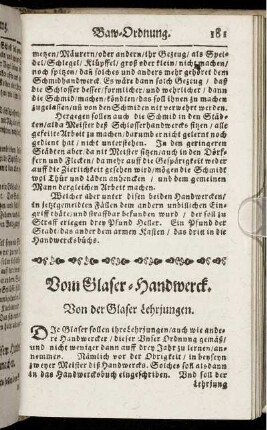 Baw-Ordnung. 181
metzen/Mäurern/oder anders/ihr Gezeug/als Spei-
del/Schlegel/Klüpffel/groß oder klein/nicht machen/
noch spitzen/ daß solches und anders mehr gehöret dem
Schmidhandwerck. Es wäre dann solch Gezeug / daß
die Schlosser besser/förmlicher/und wehrlicher / dann
die Schmid/machen/könden/das soll ihnen zu machen
zugelassen/uñ von den Schmiden nit verwehrt werden.
Hergegen sollen auch die Schmid in den Städt-
en/allda Meister deß Schlosserhandwercks sitzen/ alle
gefeilte Arbeit zu machen/darumb er nicht gelernt noch
gedient hat / nicht unterstehn. In den geringeren
Städten aber da nit Meister sitzen/auch in den Dörf-
fern und Flecken/da mehr auff die Gespärigkeit weder
auff die Zierlichkeit gesehen wird/mögen die Schmidt
wol Thür und Läden anhencken / und dem gemeinen
Mann dergleichen Arbeit machen.
Welcher aber unter disen beeden Handwercken/
in jetztgemelden Fällen dem andern unbillichen Ein-
griff thäte/und straffbar befunden wurd / der soll zu
Straff erlegen drey Pfund Heller. Ein Pfund der
Stadt/das ander dem armen Kasten / das dritt in die
Handwercksbüchs.
Vom Glaser-Handwerck.
Von der Glaser Lehrjungen.
Die Glaser sollen ihre Lehrjungen/auch wie ande-
re Handwercker / dieser Unser Ordnung gemäß/
und nicht weniger dann auff drey Jahr zu lernen/an-
nemmen. Nämlich vor der Obrigkeit / in beyseyn
zweyer Meister diß Handwercks. Solches soll alsdann
in das Handwercksbuch eingeschriben. Und soll der
Lehrjung